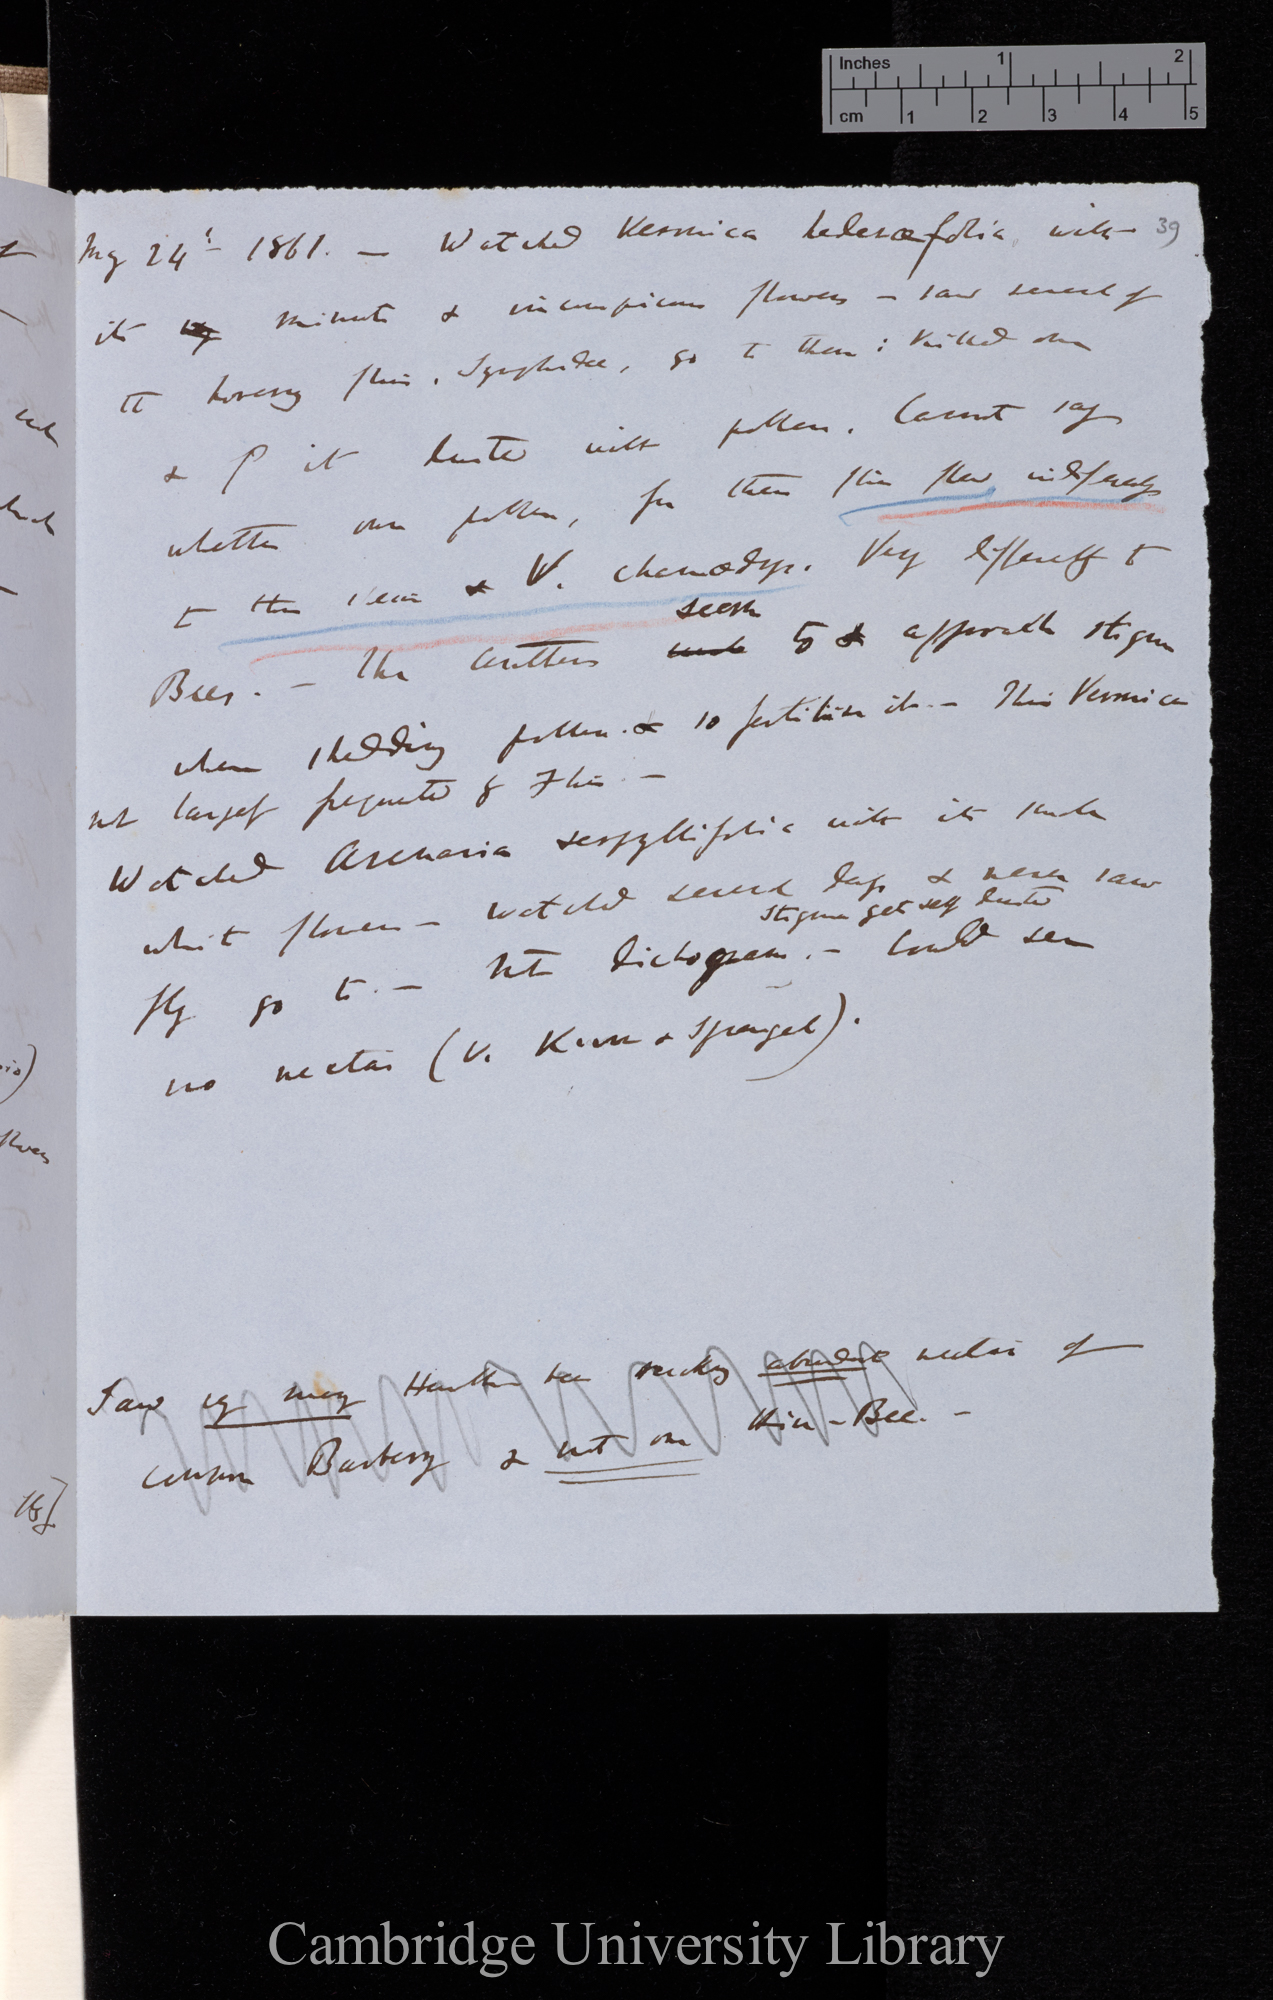 Inches 1 2
cm 1 2 3 4 5
39
May 24th 1861. — Watched Veronica hederæfolia, with
its minute & inconspicuous flowers — saw several of
the hovering flies, Syrphidæ, go to them: killed one
& it dusted with pollen. Cannot say
whether own pollen, for these flies flew indifferently
to this Veron & V. chamædrys. Very differently to
Bees. — The Anthers seem to approach stigma
when shedding pollen & so fertilise it. — This Veronica
not largely frequented by Flies. —
Watched Arenaria serpyllifolia with its small
white flowers — watched several days & never saw
stigma get self dusted
fly go to. — Not dichogam. — Could see
no nectar (V. Kurr & Sprengel).
Saw many Humble bees sucking abundant nectar of
common Barberry & not one Hive-Bee. —
which
flowers
Cambridge University Library